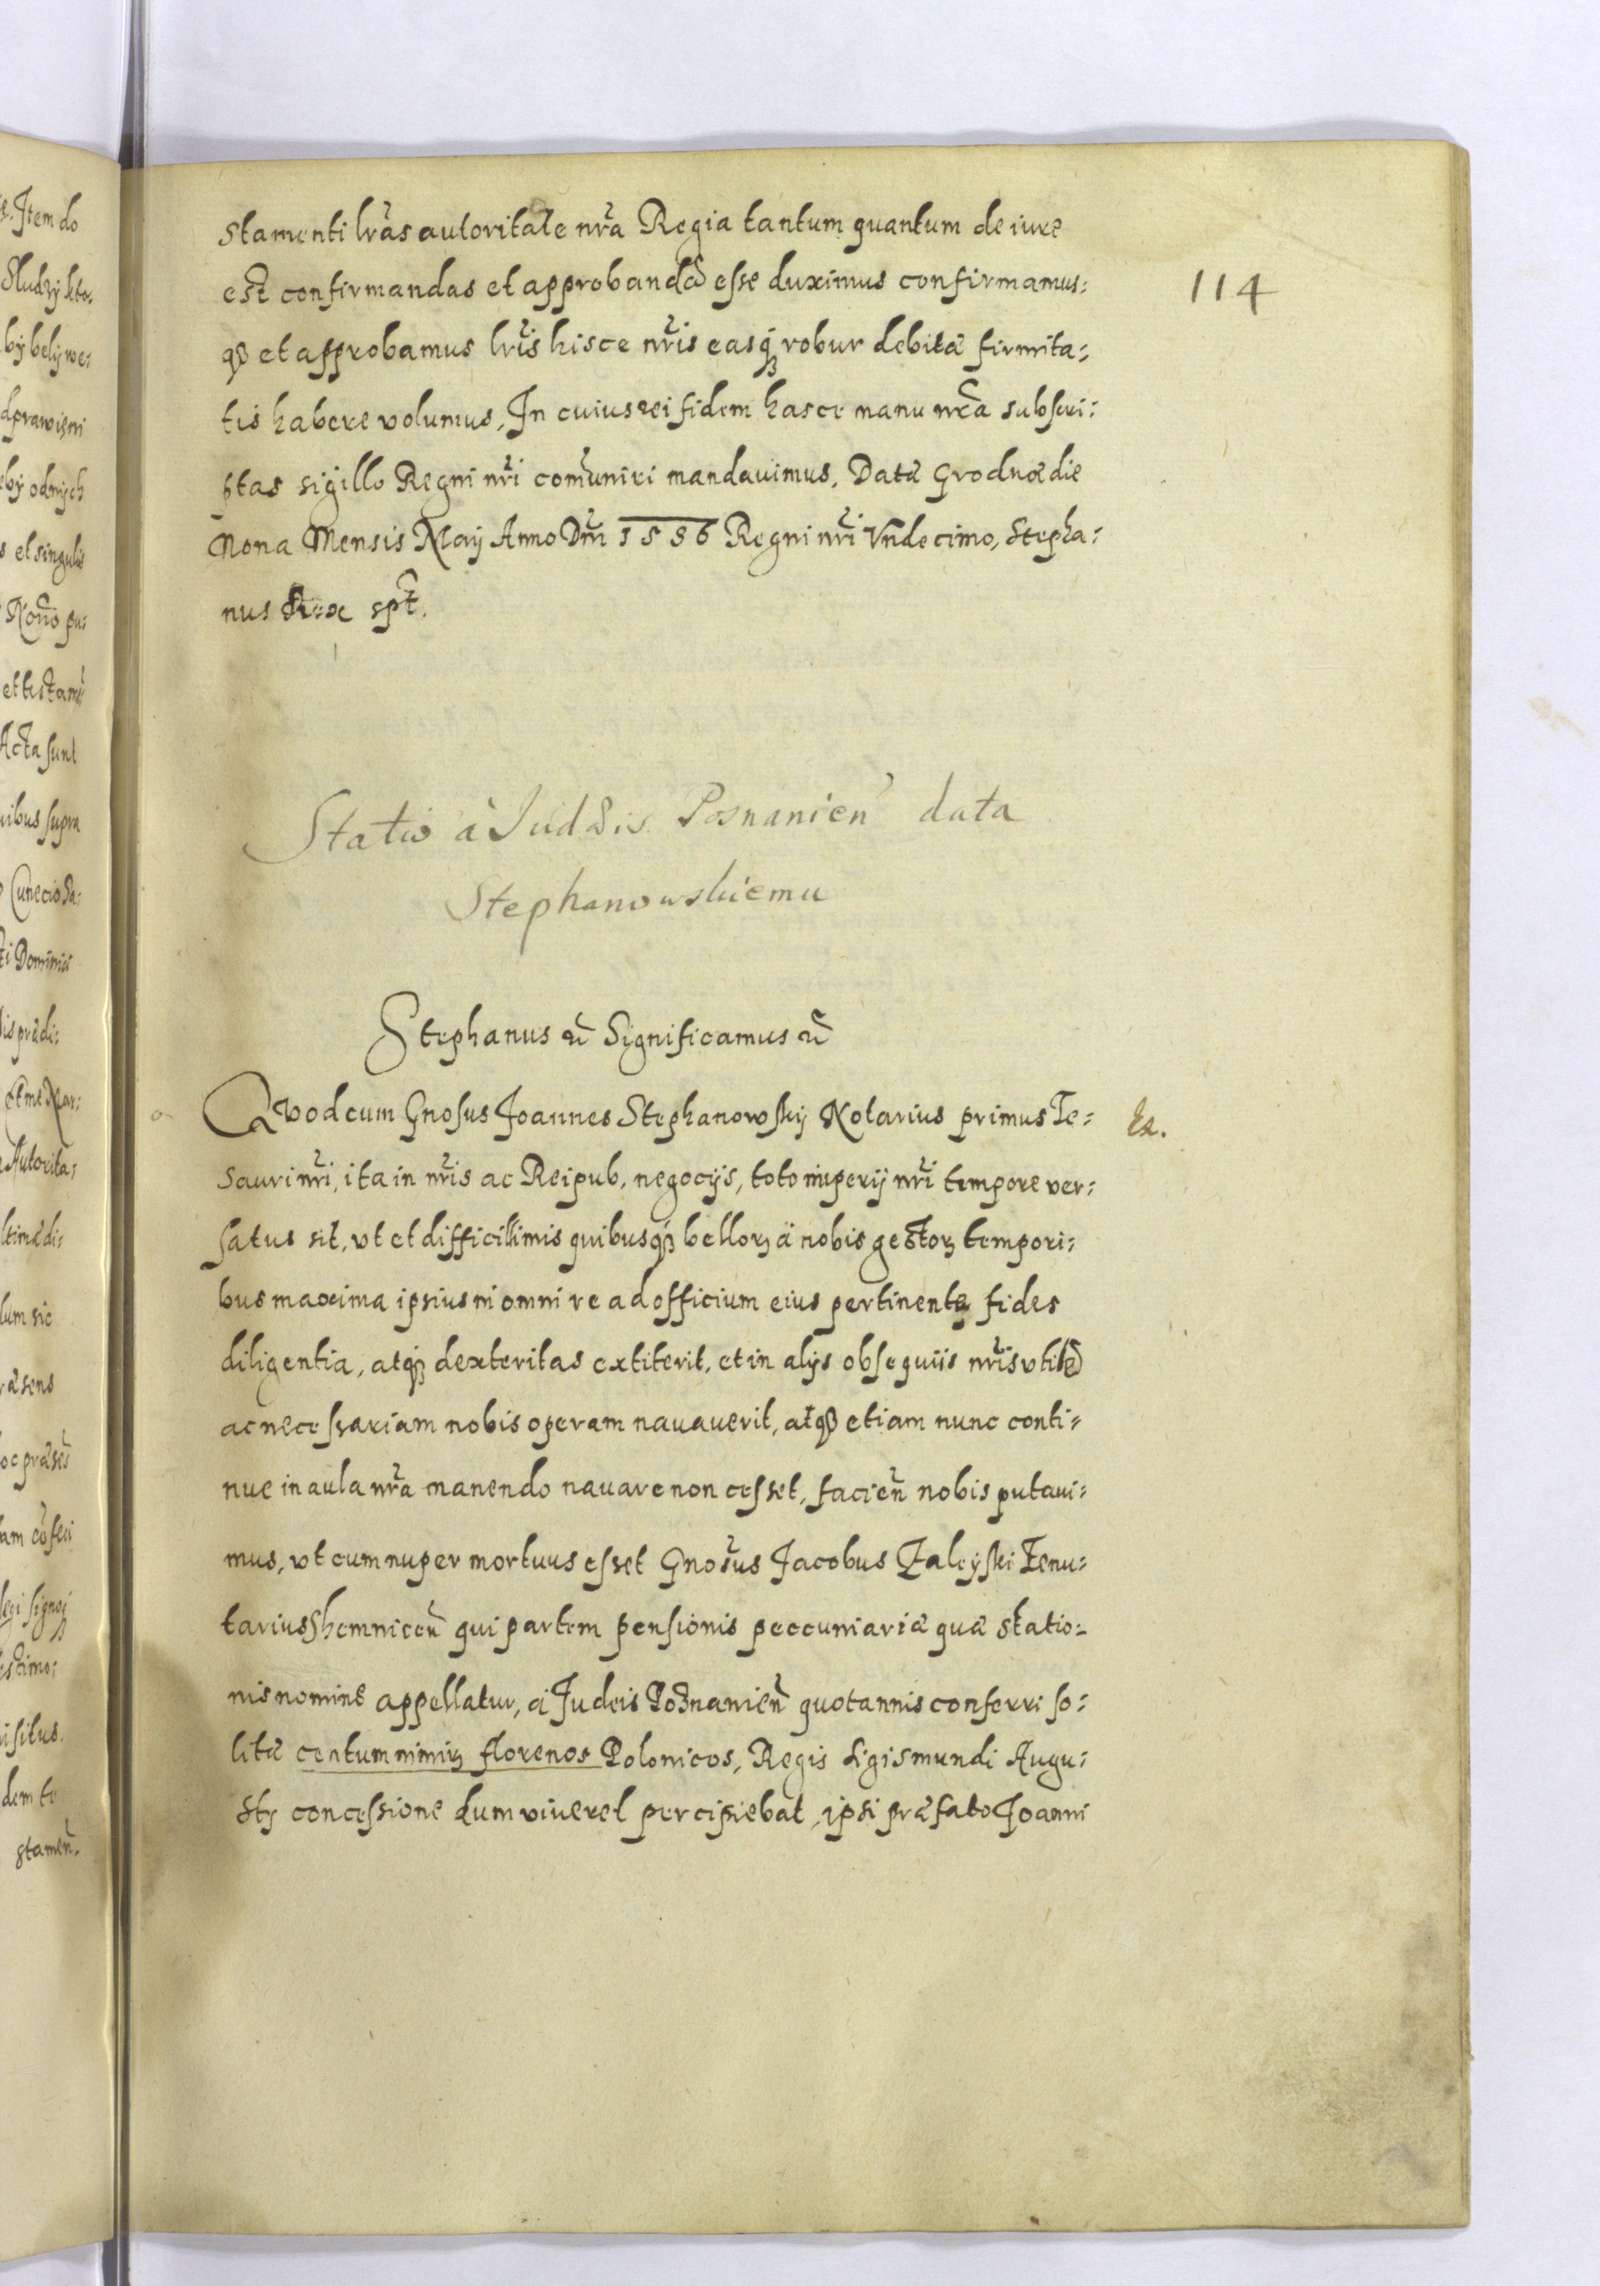 stamenti lr̃as autoritate nr̃a Regia tantum quantum de iure
est confirmandas et approbandã esse duximus confirmamus:
qꝫ et approbamus lr̃is hisce nr̃is easqꝫ robur debitæ firmita:
tis habere volumus, In cuius rei fidem hasce manu nr̃a subscri:
ptas sigillo Regni nr̃i com̃uniri mandauimus, Datæ Grodnæ die
Nona Mensis Maij Anno Dñi 1586 Regni nr̃i Vndecimo, Stepha:
nus Rex spt̃.
114
Statio à Judæis Posnanien̄ data
Stephanowskiemu
Stephanus ec̃ Significamus ec̃
Quod cum Gnosus Joannes Stephanowskij Notarius primus Te:
sauri nr̃i, ita in nr̃is ac Reipub, negocijs, toto imperij nr̃i tempore ver:
satus sit, vt et difficillimis quibusqꝫ belloꝝ à nobis gestoꝝ tempori:
bus maxima ipsius in omni re ad officium eius pertinente fides
diligentia, atqꝫ dexteritas extiterit, et in alijs obsequiis nr̃is vtilẽ
ac necessariam nobis operam nauauerit, atqꝫ etiam nunc conti:
nue in aula nr̃a manendo nauare non cesset, facien̄ nobis putaui:
mus, vt cum nuper mortuus esset Gnosus Jacobus Zaleyski Tenu:
tarius qui partem pensionis peccuniariæ quæ statio:
nis nomine appellatur, à Judeis Posnanien̄ quotannis conferri so:
litæ centum nimiꝝ florenos Polonicos, Regis Sigismundi Augu:
stj concessione dum viueret percipiebat, ipsi præfato Joanni